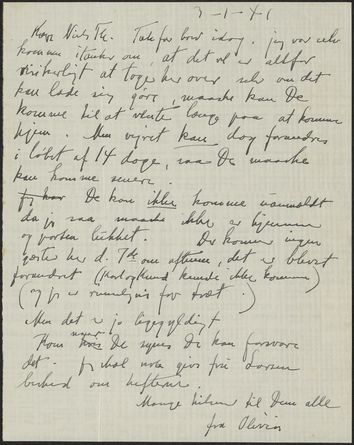 3-1-41
Kære Niels Th. Tak for brev idag. jeg var selv
komme i tanker om, at det vel er altfor
risikabelt at tage her over selv om det
kan lade sig gøre, maaske kan De
komme til at vente længe paa at komme
hjem. Men vejret kan dog forandres
i løbet af 14 dage, saa De maaske
kan komme senere.
De kan ikke komme uanmeldt
da jeg saa maaske ikke er hjemme
og porten lukket. Der kommer ingen
gæster her d. 7de om aftenen, det er blevet
forandret ( kunde ikke komme)
(og jeg er rimeligvis for træt.)
Men det er jo ligegyldigt
Kom naar De synes De kan forsvare
det. jeg skal nok give fru Larsen
besked om
Mange hilsner til Dem alle
fra Olivia